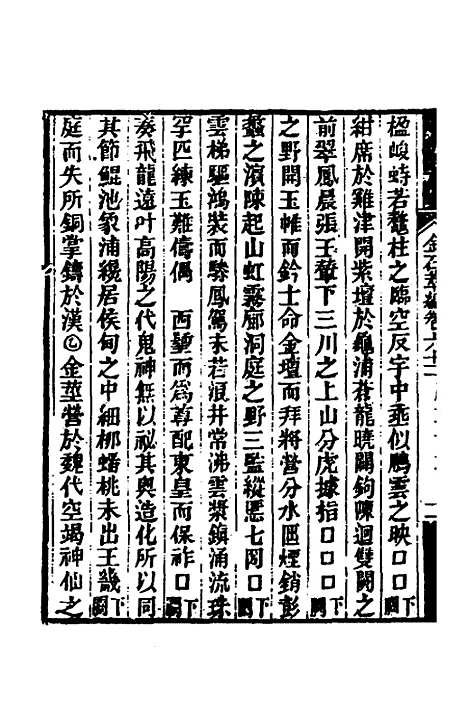 楹峻峙若鼇柱之臨空反宇中乖似鵬雲之映口口下闕
紺席於雞津開紫壇於龜浦蒼龍曉闢鉤陳迴雙闕之
前翠鳳晨張王輦下三川之上山分虎據指口口口下闕
之野開玉帷而鈐士命金壇而拜將營分水區煙銷彭
蠡之濱陳起山虹霧廓洞庭之野三監縱慝七岡口口下闕
雲梯驅鴻裝而驂鳳駕未若浪井常沸雲漿鎮涌流珠
罕匹練玉難儔偶 西堃而爲尊配東皇而保祚口下闕
奏飛龍遠叶高陽之代鬼神無以祕其奥造化所以同
其節鯤池象浦纔居侯甸之中細栁蟠桃未出王畿下闕
庭而失所銅掌鑄於漢金莖營於魏代空竭神仙之
金石萃編卷六十二